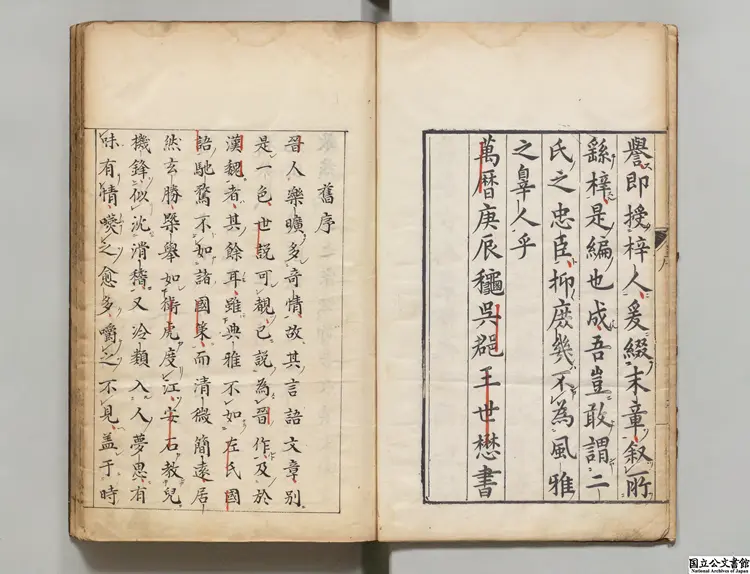 譽即授梓人爰綴末章叙所
繇梓是編也成吾豈敢謂二
氏之忠臣抑庶幾不為風雅
之辠人乎
萬曆庚辰穐吳郡王世懋書
舊序
晋人樂曠多奇情故其言語文章别
是一色世説可覩已説為晋作及於
漢魏者其餘耳雖典雅不如左氏國
語馳騖不如諸國策而清微簡遠居
然玄勝槩舉如衛虎度江安石教兒
機鋒似沈滑稽又冷類入人夢思有
味有情嚥之愈多嚼之不見盖于時
国立公文書館
National Archives of Japan